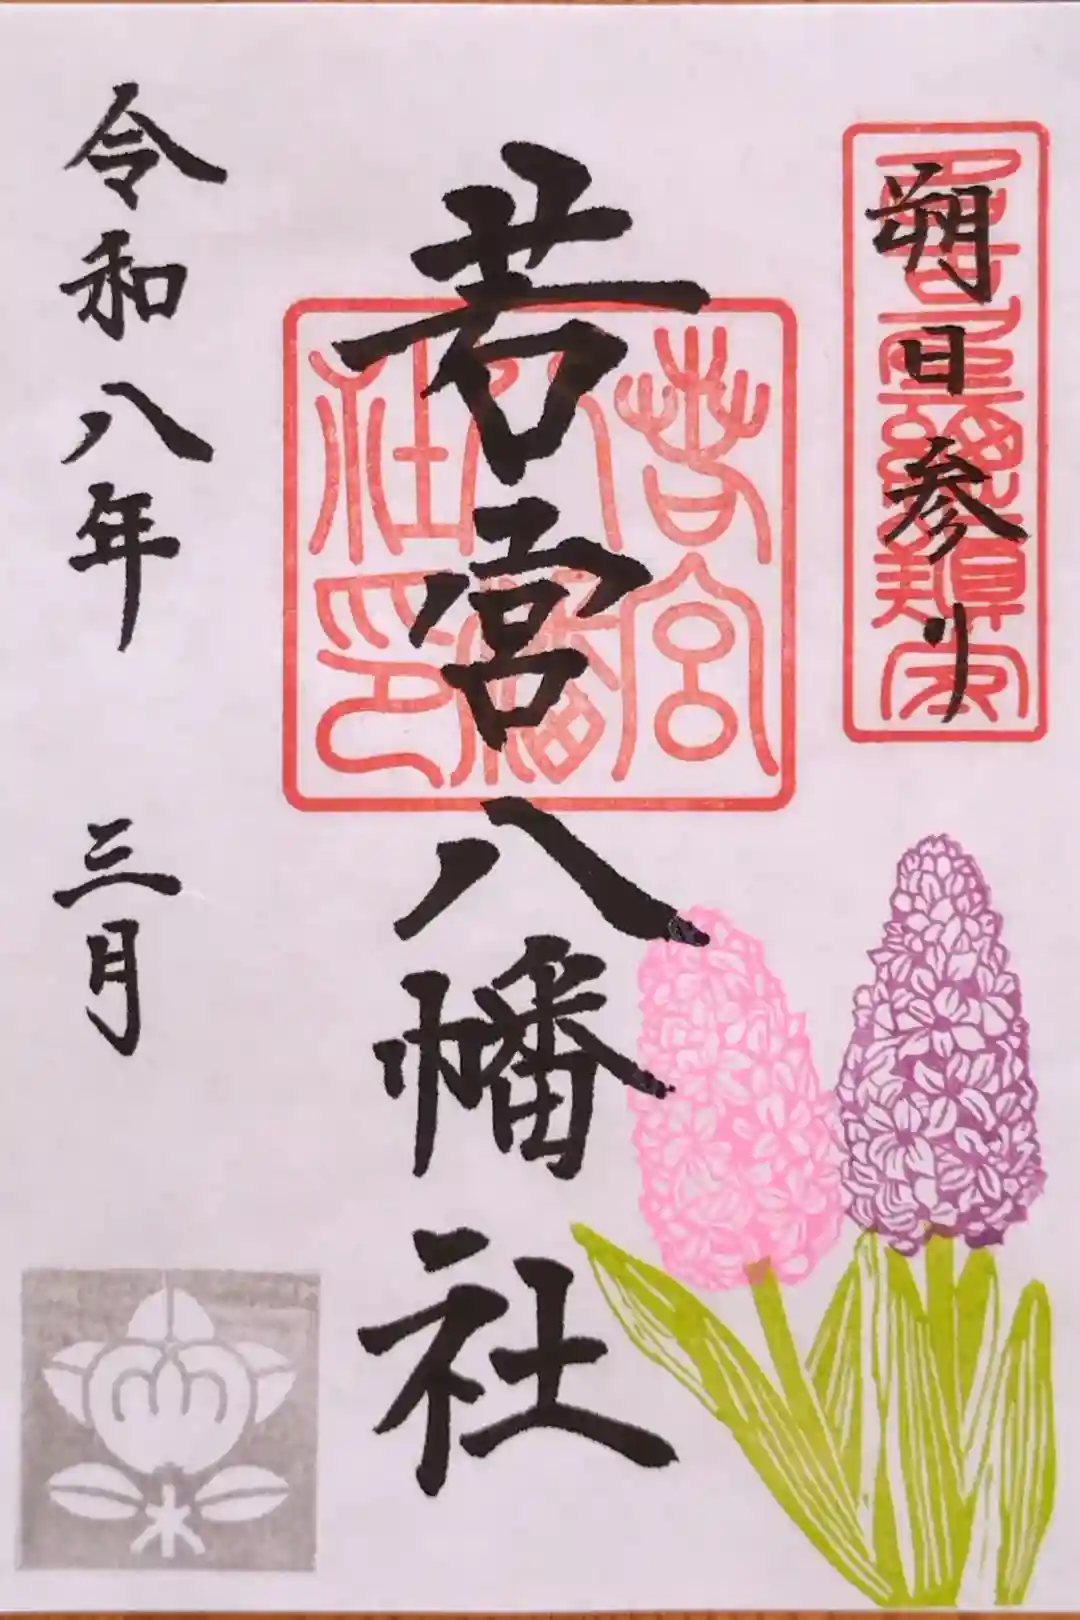 朔日参り
若宮八幡社
若宮
八幡
社印
令和八年 三月